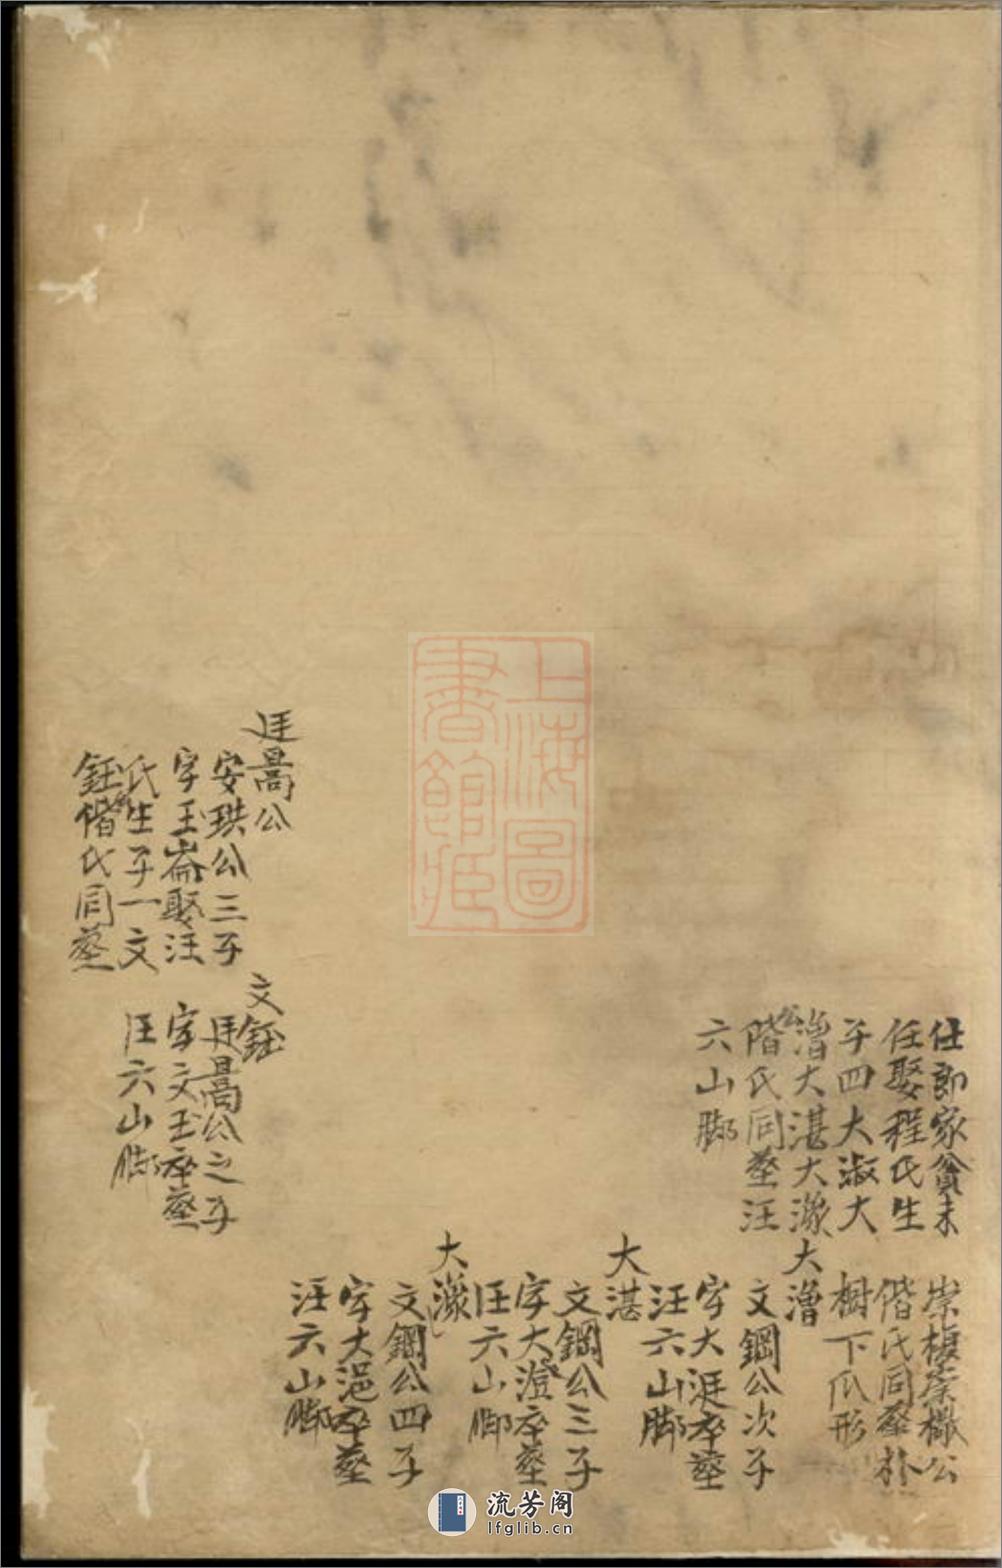 仕郎家貧未
任娶程氏生
子四大淑大
潧大湛大濴
公
偕氏同塟汪
六山脚
崇椱崇檄公
偕氏同塟朴
樹下爪形
大潧
文鋼公次子
字大涯卒塟
汪六山脚
大湛
文鋼公三子
字大澄卒塟
汪六山脚
大濴
文鋼公四子
字大浥卒塟
汪六山脚
廷暠公
安珙公三子
字玉崙娶汪
氏生子一文
鈺偕氏同塟
文鈺
廷暠公之子
字文玉卒塟
汪六山脚
上海圖
書館藏
流芳阁
lfglib.cn